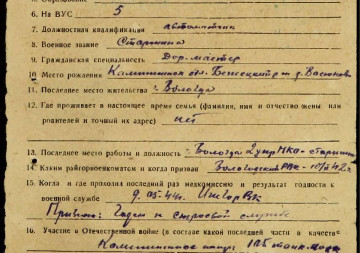 6. На ВУС 5
7. Должностная квалификация автоматчик
8. Военное звание Старшина
9. Гражданская специальность Дор. мастер
10. Место рождения Калининская обл. Бежецкий р-н д.
11. Последнее место жительства: Вологда
12. Где проживает в настоящее время семья (фамилия, имя и отчество жены или
родителей и точный их адрес) нет
13. Последнее место работы и должность Вологда
14. Каким райгорвоенкоматом и когда призван Вологодский РВК
15. Когда и где проходил последний раз медкомиссию и результат годности к
военной службе 9.05.44г.
Признан: Годен к строевой службе
16. Участие в Отечественной войне (в составе какой последней части и качестве